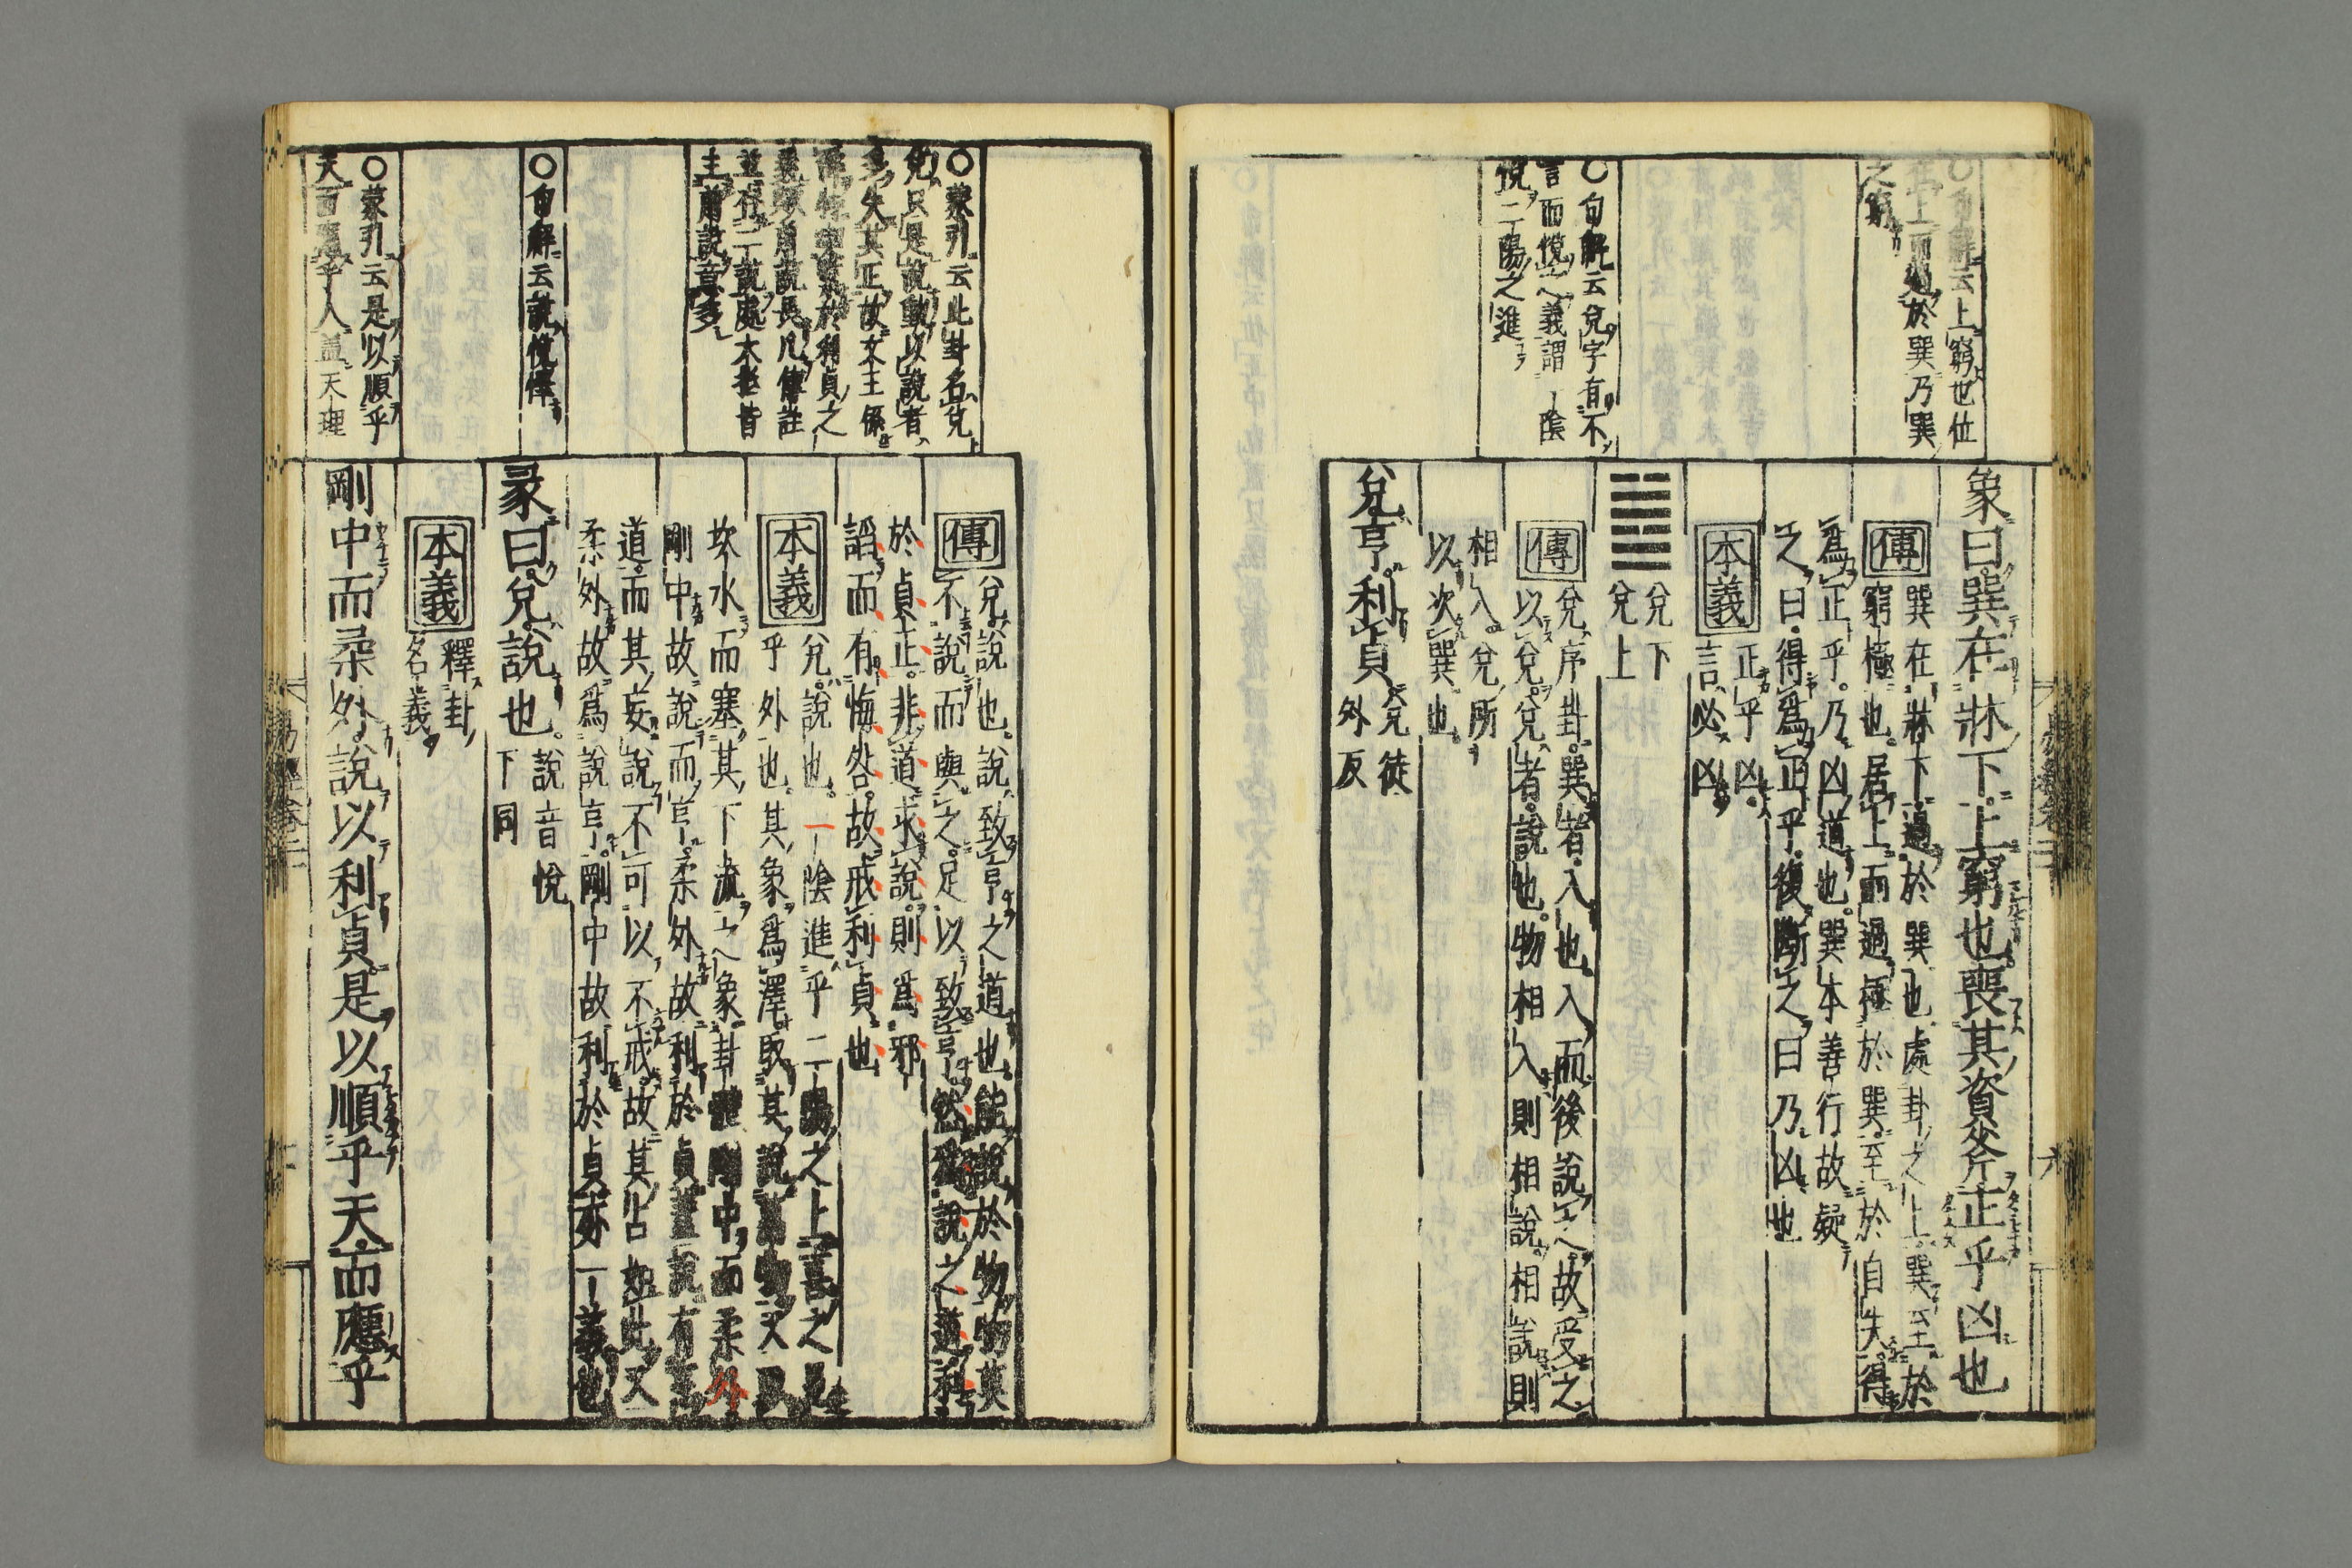 象曰巽在牀下上窮也喪其資斧正乎凶也
傳
巽在牀下過於巽也處卦之上巽至於
窮極也居上而過極於巽至於自失得
爲正乎乃凶道也巽本善行故疑
之曰得爲正乎復斷之曰乃凶也
本義
正乎凶
言必凶
兌下
兌上
傳
兌序卦巽者入也入而後說之故受之
以兌兌者說也物相入則相說相說則
相入兌所
以次巽也
兌亨利貞
兌徒
外反
○句解云上窮也位
在上而過於巽乃巽
之窮
○句解云兌字有不
言而悅之義謂一陰
悅二陽之進
傳
兌說也說致亨之道也能說於物物莫
不說而與之足以致亨然爲說之道利
於貞正非道求說則爲邪
諂而有悔咎故戒利貞也
本義
兌說也一陰進乎二陽之上喜之見
乎外也其象爲澤取其說萬物又取
坎水而塞其下流之象卦體剛中而柔外
剛中故說而亨柔外故利於貞蓋說有亨
道而其妄說不可以不戒故其占如此又
柔外故爲說亨剛中故利於貞亦一義也
彖曰兌說也
說音悅
下同
本義
釋卦
名義
剛中而柔外說以利貞是以順乎天而應乎
○蒙引云此卦名兌
兌只是說動以說者
多失其正故文王係
並存二說處大抵皆
主前說意多
○句解云說悅懌
○蒙引云是以順乎
天而應乎人蓋天理
易經卷二